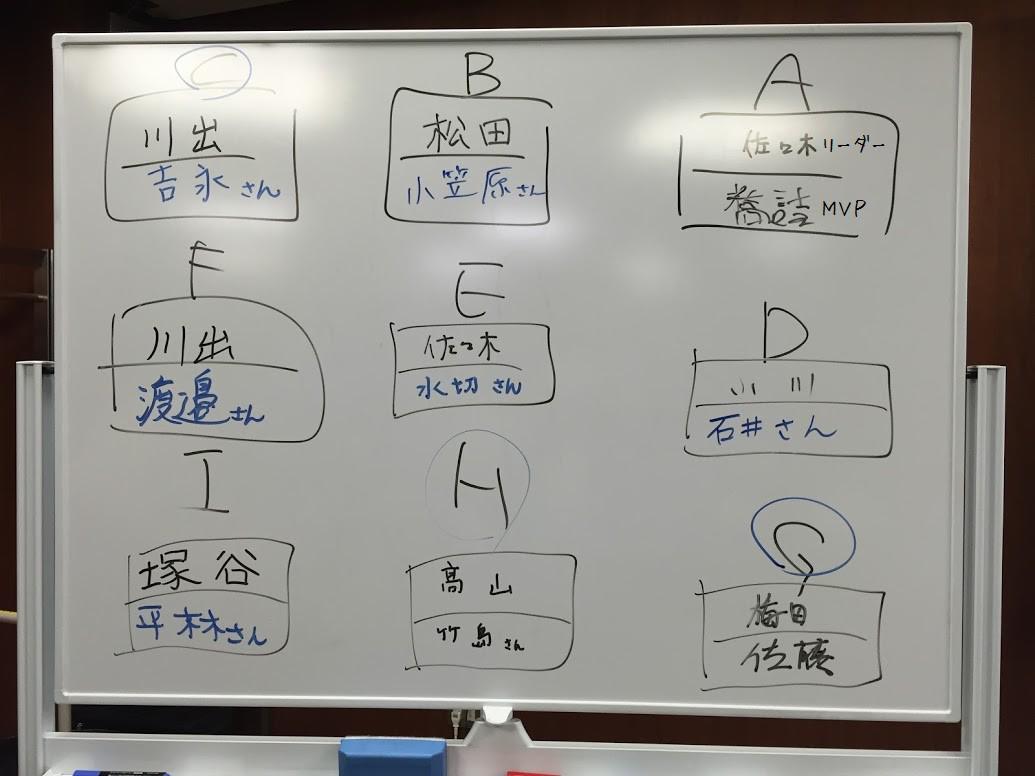 C
川出
吉永さん
B
松田
小笠原さん
A
佐々木リーダー
MVP
F
川出
渡邉さん
E
佐々木
水切さん
D
小川
石井さん
I
塚谷
平林さん
H
高山
竹島さん
G
梅田
佐藤